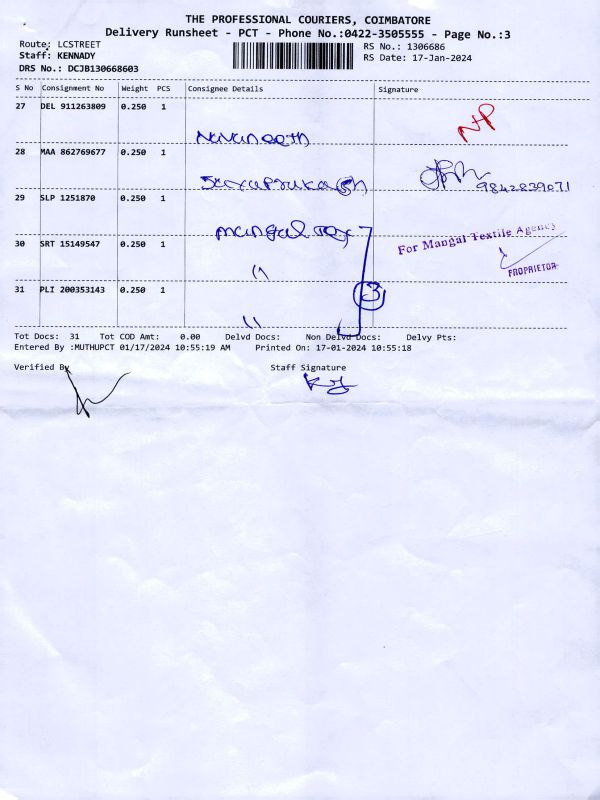 THE PROFESSIONAL COURIERS, COIMBATORE
Delivery Runsheet - PCT - Phone No.:0422-3505555 - Page No.:3
Route: LCSTREET
RS No.: 1306686
Staff: KENNADY
RS Date: 17-Jan-2024
DRS No.: DCJB130668603
S No Consignment No Weight PCS Consignee Details Signature
27 DEL 911263809 0.250 1
NP
Navaneeth
28 MAA 862769677 0.250 1
9842839071
29 SLP 1251870 0.250 1
Mangal Tex
For Mangal Textile Agency
30 SRT 15149547 0.250 1
PROPRIETOR
"
31 PLI 200353143 0.250 1
3
"
Tot Docs: 31 Tot COD Amt: 0.00 Delvd Docs: Non Delvd Docs: Delvy Pts:
Entered By :MUTHUPCT 01/17/2024 10:55:19 AM Printed On: 17-01-2024 10:55:18
Verified By Staff Signature